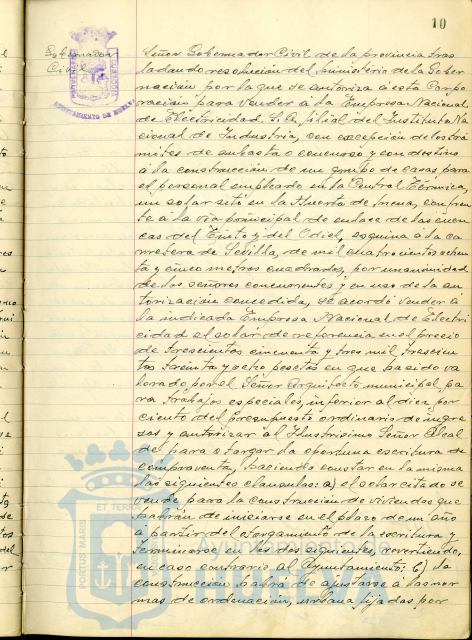 10
Gobernador
Civil
AYUNTAMIENTO DE HUELVA
Señor Gobernador Civil de la provincia tras
ladando resolución del Ministerio de la Gober
nación por la que se autoriza a esta Corpo
ración para vender a la Empresa Nacional
de Electricidad S.A. filial del Instituto Na
cional de Industria, con excepción de los trá
mites de subasta o concurso y con destino
a la construcción de un grupo de casas para
el personal empleado en la Central Térmica,
un solar sito en la Huerta de Mena, con fren
te a la vía principal de enlace de las cuen
cas del Tinto y del Odiel, esquina a la ca
rretera de Sevilla, de mil cuatrocientos ochen
ta y cinco metros cuadrados, por unanimidad
de los señores concurrentes y en uso de la au
torización concedida, se acordó vender a
la indicada Empresa Nacional de Electri
cidad el solar de referencia en el precio
de trescientas cincuenta y tres mil trescien
tas treinta y ocho pesetas en que ha sido va
lorado por el Señor Arquitecto municipal pa
ra trabajos especiales, inferior al diez por
ciento del presupuesto ordinario de ingre
sos y autorizar al Ilustrísimo Señor Alcal
de para otorgar la oportuna escritura de
compraventa, haciendo constar en la misma
las siguientes clausulas: a) el solar citado se
vende para la construcción de viviendas que
habrán de iniciarse en el plazo de un año
a partir del otorgamiento de la escritura y
terminarse en los dos siguientes, revertiendo,
en caso contrario al Ayuntamiento: b) la
construcción habrá de ajustarse a las nor
mas de ordenación urbana fijadas por
PORTUS MARIS
ET TERRAE
Ayuntamiento de
HUELVA